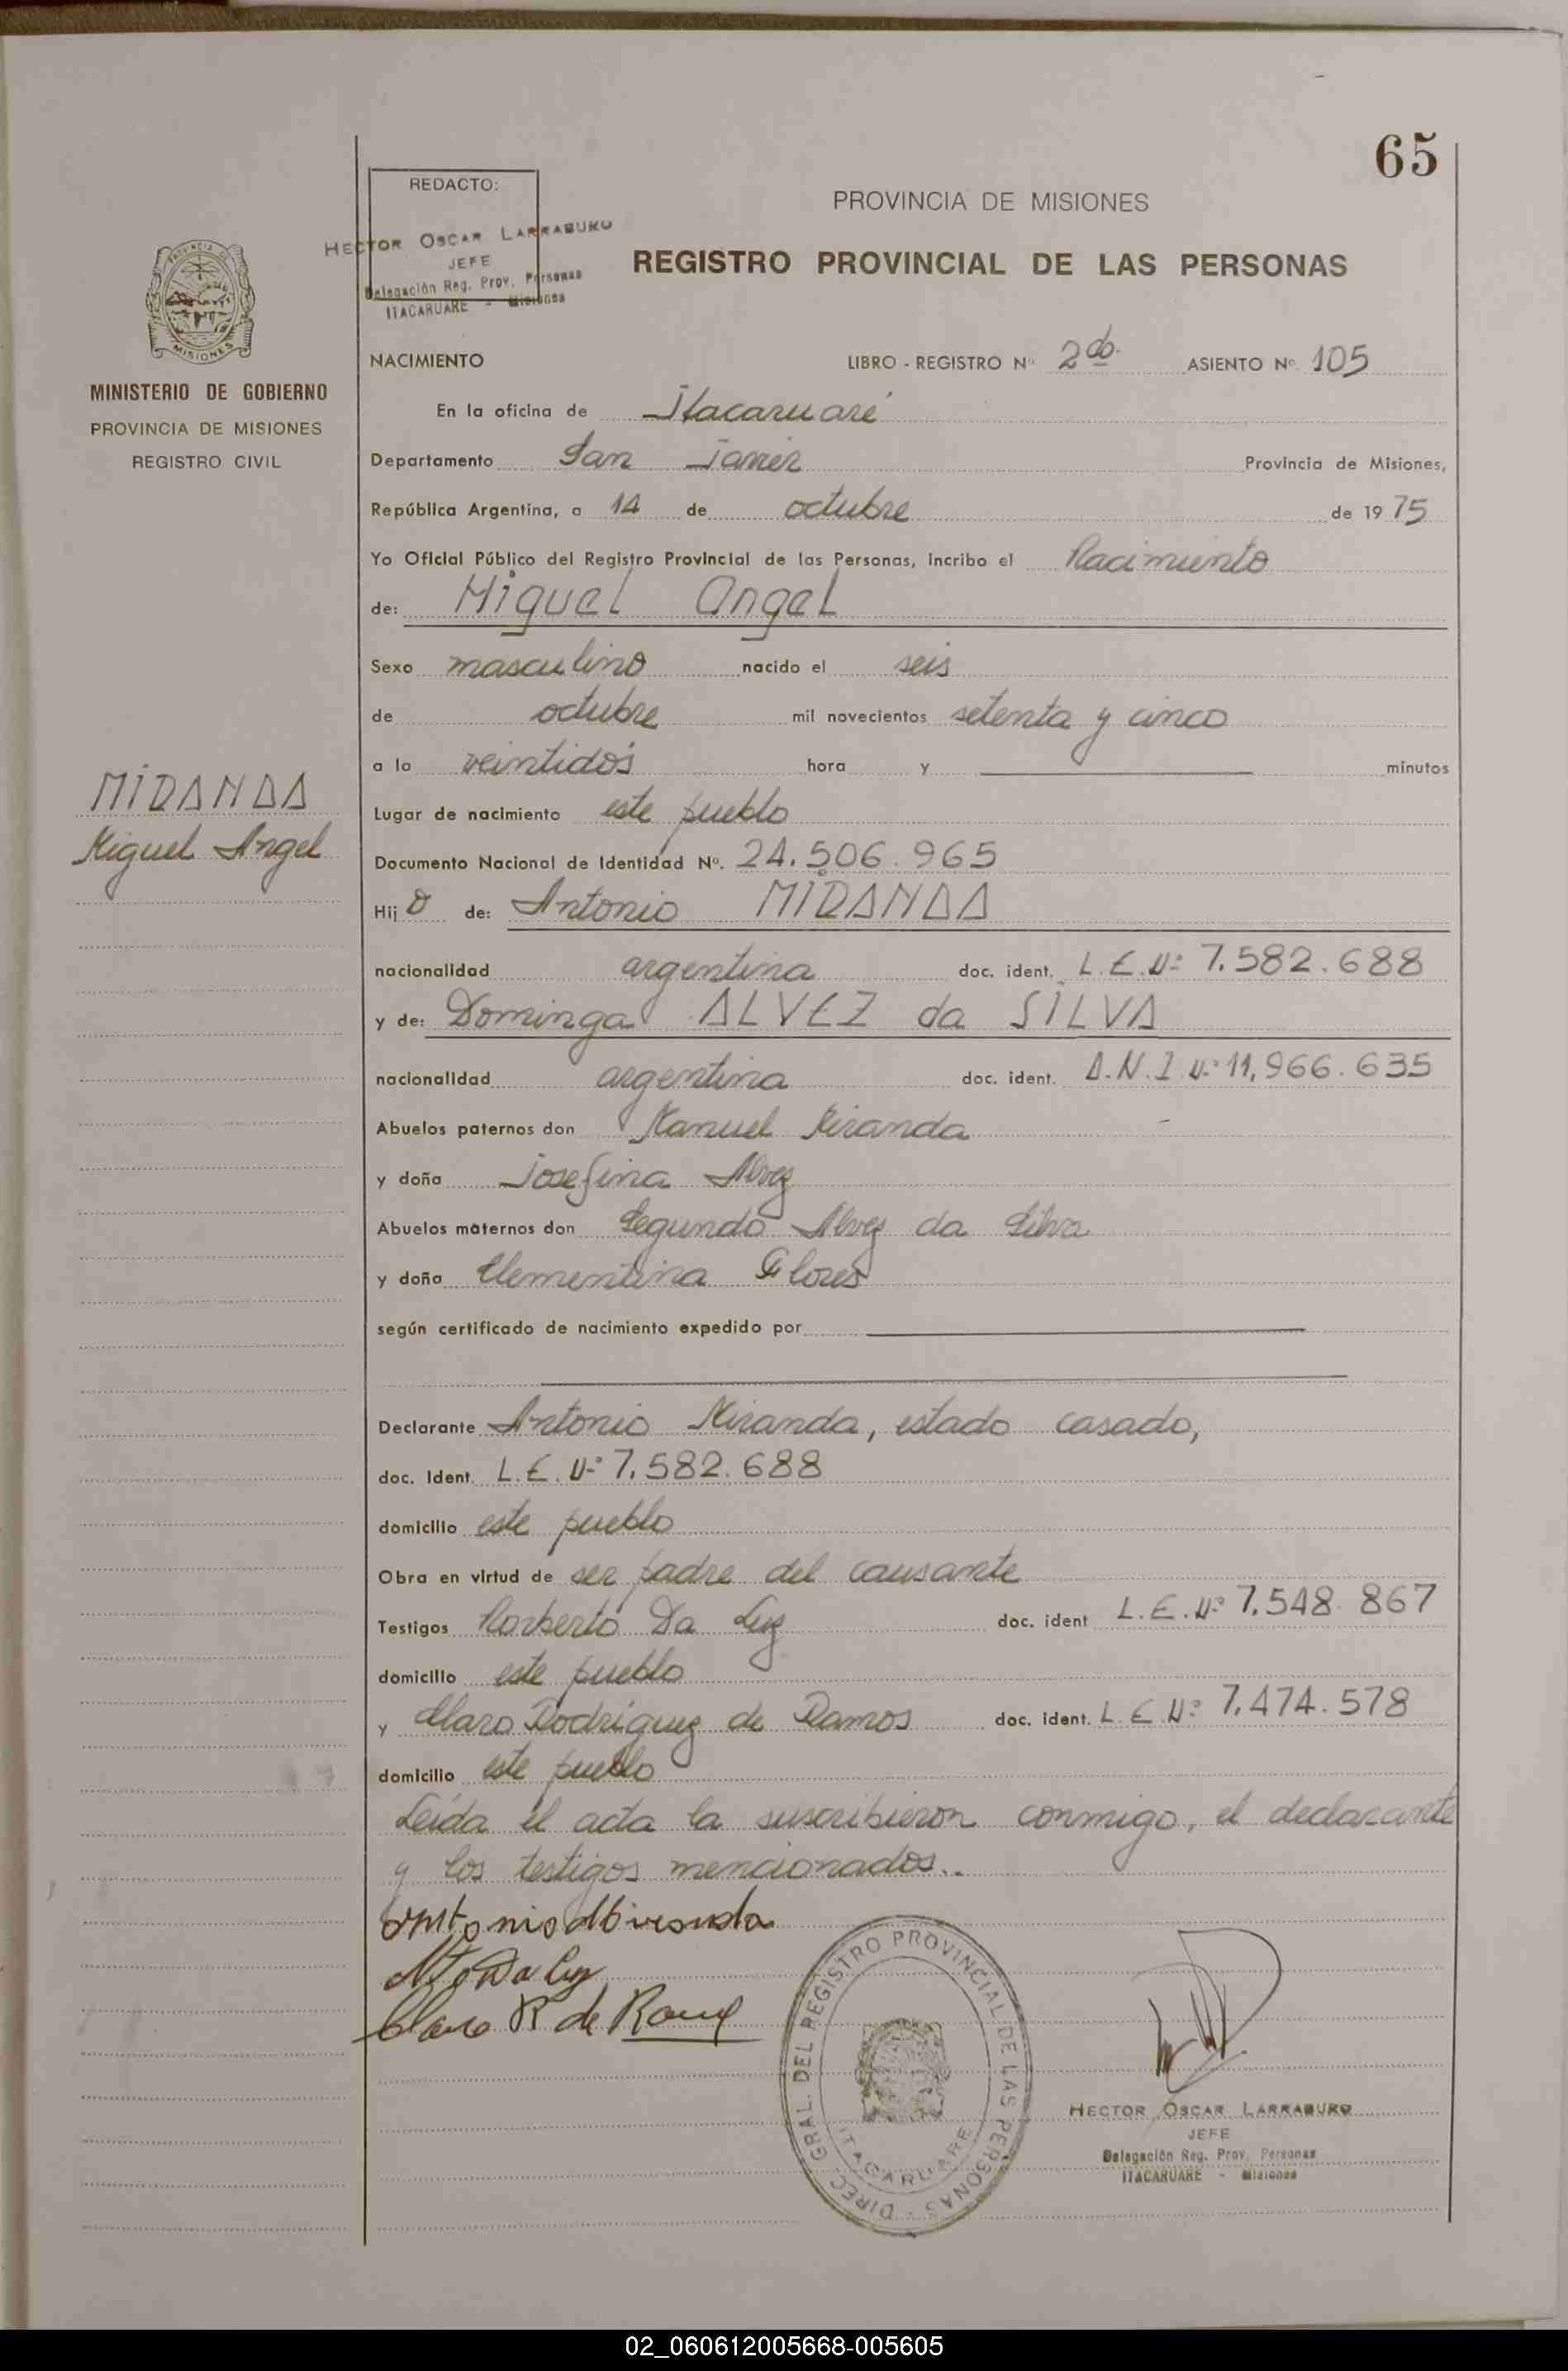 65
REDACTO:
HECTOR OSCAR LARRABURU
JEFE
Delegación Reg. Prov. Personas
ITACARUARE - Misiones
PROVINCIA DE MISIONES
REGISTRO PROVINCIAL DE LAS PERSONAS
PROVINCIA DE
MISIONES
MINISTERIO DE GOBIERNO
PROVINCIA DE MISIONES
REGISTRO CIVIL
NACIMIENTO LIBRO - REGISTRO Nº 2do. ASIENTO Nº 105
En la oficina de Itacaruaré
Departamento San Javier Provincia de Misiones,
República Argentina, a 14 de octubre de 1975
Yo Oficial Público del Registro Provincial de las Personas, incribo el Nacimiento
de: Miguel Angel
Sexo masculino nacido el seis
de octubre mil novecientos setenta y cinco
a la veintidós hora y minutos
MIRANDA
Miguel Angel
Lugar de nacimiento este pueblo
Documento Nacional de Identidad Nº. 24.506.965
Hijo de: Antonio MIRANDA
nacionalidad argentina doc. ident. L.E.Nº 7.582.688
y de: Dominga ALVEZ da SILVA
nacionalidad argentina doc. ident. D.N.I Nº 11.966.635
Abuelos paternos don Manuel Miranda
y doña Josefina Alvez
Abuelos maternos don Segundo Alvez da Silva
y doña Clementina Flores
según certificado de nacimiento expedido por
Declarante Antonio Miranda, estado casado,
doc. Ident. L.E. Nº 7.582.688
domicilio este pueblo
Obra en virtud de ser padre del causante
Testigos Norberto Da Luz doc. ident L.E.Nº 7.548.867
domicilio este pueblo
y Claro Rodriguez de Ramos doc. ident. L.E Nº 7.474.578
domicilio este pueblo
Leída el acta la suscribieron conmigo, el declarante
y los testigos mencionados..
Antonio Miranda
Nto Da Luz
Claro R de Ramos
DIREC. GRAL. DEL REGISTRO PROVINCIAL DE LAS PERSONAS -
ITACARUARE
HECTOR OSCAR LARRABURU
JEFE
Delegación Reg. Prov. Personas
ITACARUARE - Misiones
02_060612005668-005605